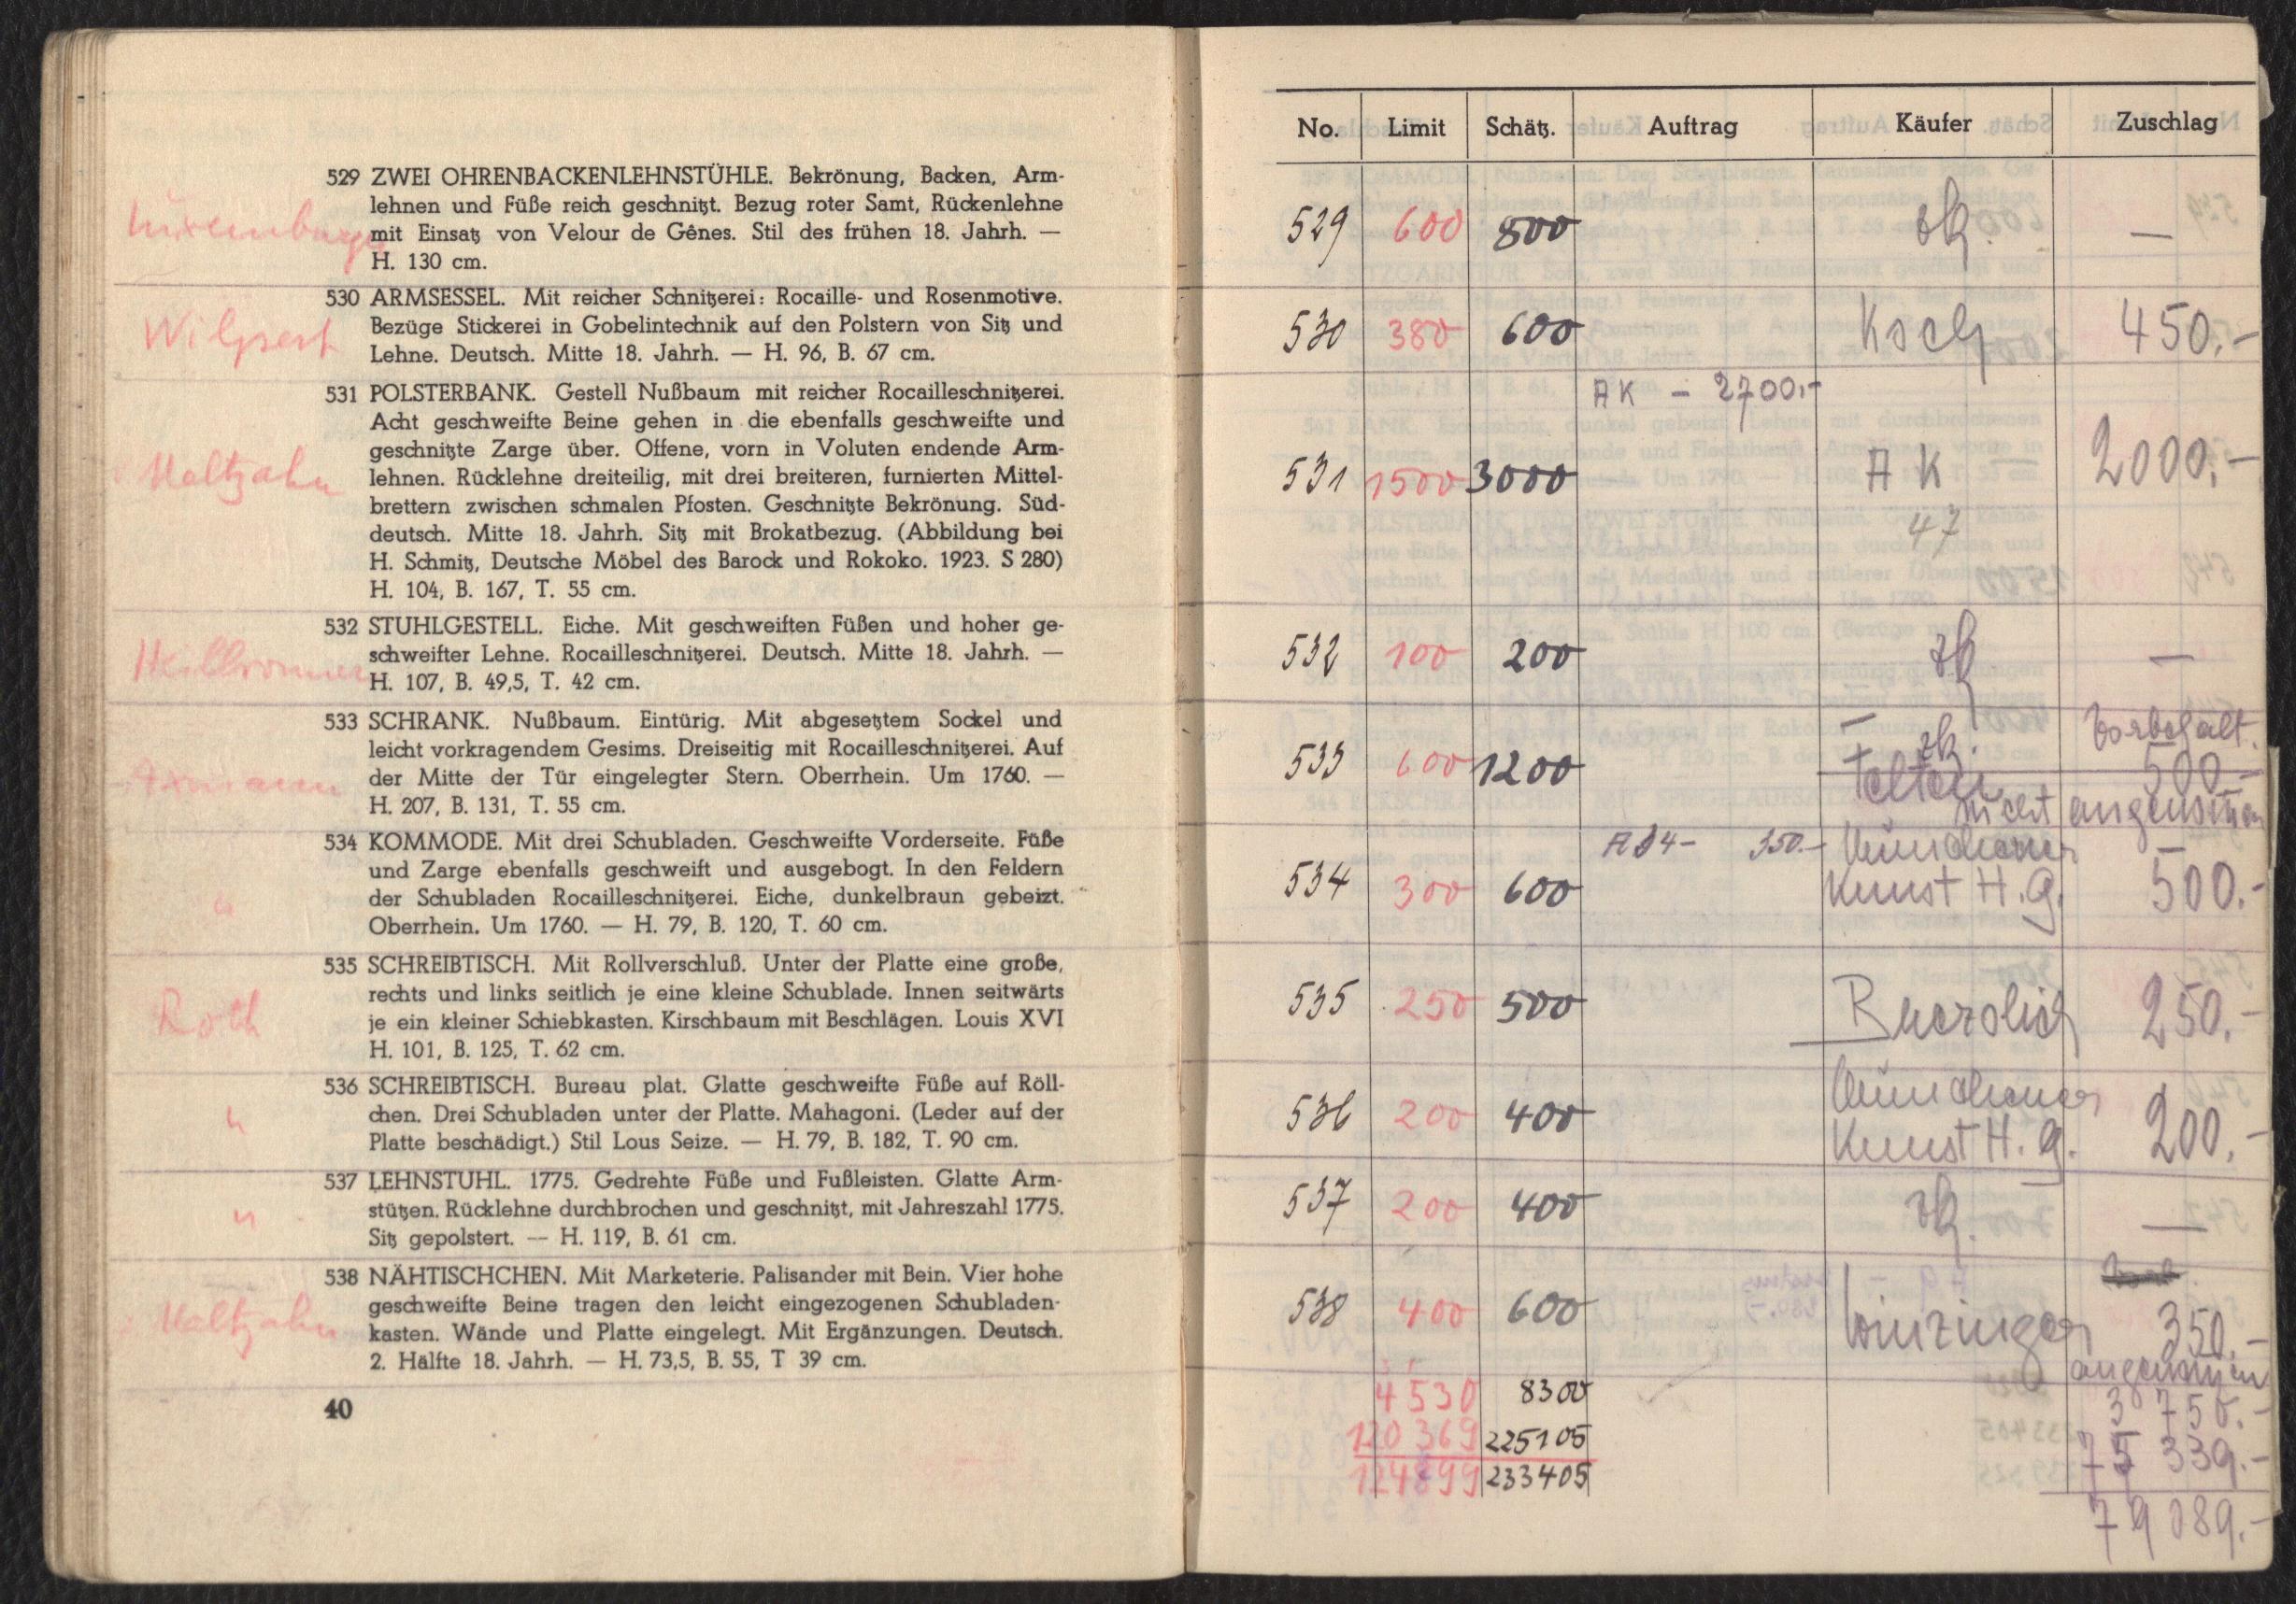 529 ZWEI OHRENBACKENLEHNSTÜHLE. Bekrönung, Backen, Arm-
lehnen und Füße reich geschnitzt. Bezug roter Samt, Rückenlehne
mit Einsatz von Velour de Gênes. Stil des frühen 18. Jahrh. —
H. 130 cm.
Wilpert
530 ARMSESSEL. Mit reicher Schnitzerei: Rocaille- und Rosenmotive.
Bezüge Stickerei in Gobelintechnik auf den Polstern von Sitz und
Lehne. Deutsch. Mitte 18. Jahrh. — H. 96, B. 67 cm.
Maltzahn
531 POLSTERBANK. Gestell Nußbaum mit reicher Rocailleschnitzerei.
Acht geschweifte Beine gehen in die ebenfalls geschweifte und
geschnitzte Zarge über. Offene, vorn in Voluten endende Arm-
lehnen. Rücklehne dreiteilig, mit drei breiteren, furnierten Mittel-
brettern zwischen schmalen Pfosten. Geschnitzte Bekrönung. Süd-
deutsch. Mitte 18. Jahrh. Sitz mit Brokatbezug. (Abbildung bei
H. Schmitz, Deutsche Möbel des Barock und Rokoko. 1923. S 280)
H. 104, B. 167, T. 55 cm.
Heilbronner
532 STUHLGESTELL. Eiche. Mit geschweiften Füßen und hoher ge-
schweifter Lehne. Rocailleschnitzerei. Deutsch. Mitte 18. Jahrh. —
H. 107, B. 49,5, T. 42 cm.
Axmann
533 SCHRANK. Nußbaum. Eintürig. Mit abgesetztem Sockel und
leicht vorkragendem Gesims. Dreiseitig mit Rocailleschnitzerei. Auf
der Mitte der Tür eingelegter Stern. Oberrhein. Um 1760. —
H. 207, B. 131, T. 55 cm.
"
534 KOMMODE. Mit drei Schubladen. Geschweifte Vorderseite. Füße
und Zarge ebenfalls geschweift und ausgebogt. In den Feldern
der Schubladen Rocailleschnitzerei. Eiche, dunkelbraun gebeizt.
Oberrhein. Um 1760. — H. 79, B. 120, T. 60 cm.
Roth
535 SCHREIBTISCH. Mit Rollverschluß. Unter der Platte eine große,
rechts und links seitlich je eine kleine Schublade. Innen seitwärts
je ein kleiner Schiebkasten. Kirschbaum mit Beschlägen. Louis XVI
H. 101, B. 125, T. 62 cm.
"
536 SCHREIBTISCH. Bureau plat. Glatte geschweifte Füße auf Röll-
chen. Drei Schubladen unter der Platte. Mahagoni. (Leder auf der
Platte beschädigt.) Stil Lous Seize. — H. 79, B. 182, T. 90 cm.
"
537 LEHNSTUHL. 1775. Gedrehte Füße und Fußleisten. Glatte Arm-
stützen. Rücklehne durchbrochen und geschnitzt, mit Jahreszahl 1775.
Sitz gepolstert. — H. 119, B. 61 cm.
Maltzahn
538 NÄHTISCHCHEN. Mit Marketerie. Palisander mit Bein. Vier hohe
geschweifte Beine tragen den leicht eingezogenen Schubladen-
kasten. Wände und Platte eingelegt. Mit Ergänzungen. Deutsch.
2. Hälfte 18. Jahrh. — H. 73,5, B. 55, T 39 cm.
40
No. Limit Schätz. Auftrag Käufer Zuschlag
529 600 800 zk. —
530 380 600 Ksch 450.-
AK - 2700.-
531 1500 3000 AK 2000.-
47
532 100 200 zk —
Vorbehalt.
533 600 1200 zk. 500.-
nicht angenommen
350.- Münchener
534 300 600 Kunst H.G. 500.-
535 250 500 250.-
Münchener
536 200 400 Kunst H.G. 200.-
537 200 400 zk. —
538 400 600 Winzinger 350.-
angenommen
4530 8300 3 750.-
120 369 225105 75 339.-
124899 233405 79 089.-